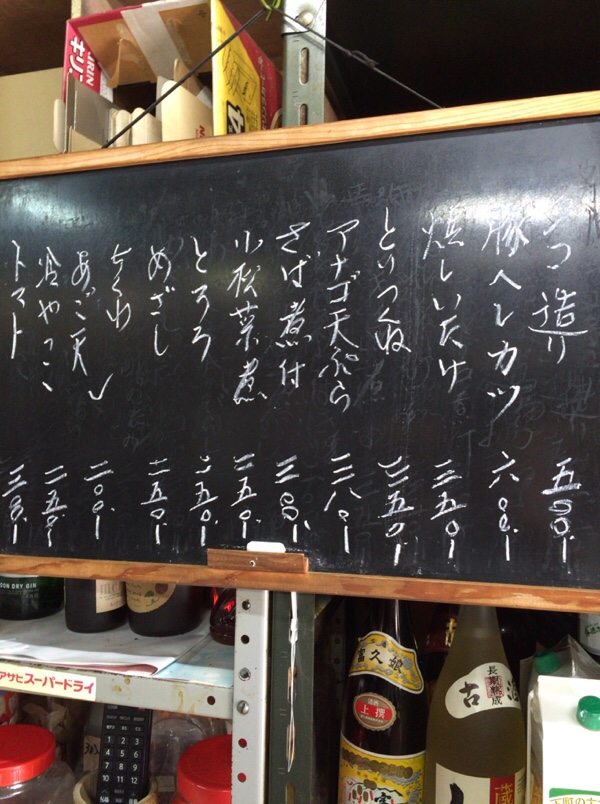 造り 五〇〇
豚ヘレカツ 六〇〇
焼しいたけ 三五〇
とりつくね 三五〇
アナゴ天ぷら 三八〇
さば煮付 三〇〇
小松菜煮 二五〇
とろろ 二五〇
めざし 二五〇
ちくわ
あご天 二〇〇
冷やっこ 二五〇
トマト 三〇〇
KIRIN
キリ
DRY GIN
アサヒスーパードライ
富久娘
上撰
長期熟成
古酒
蔵
下町の